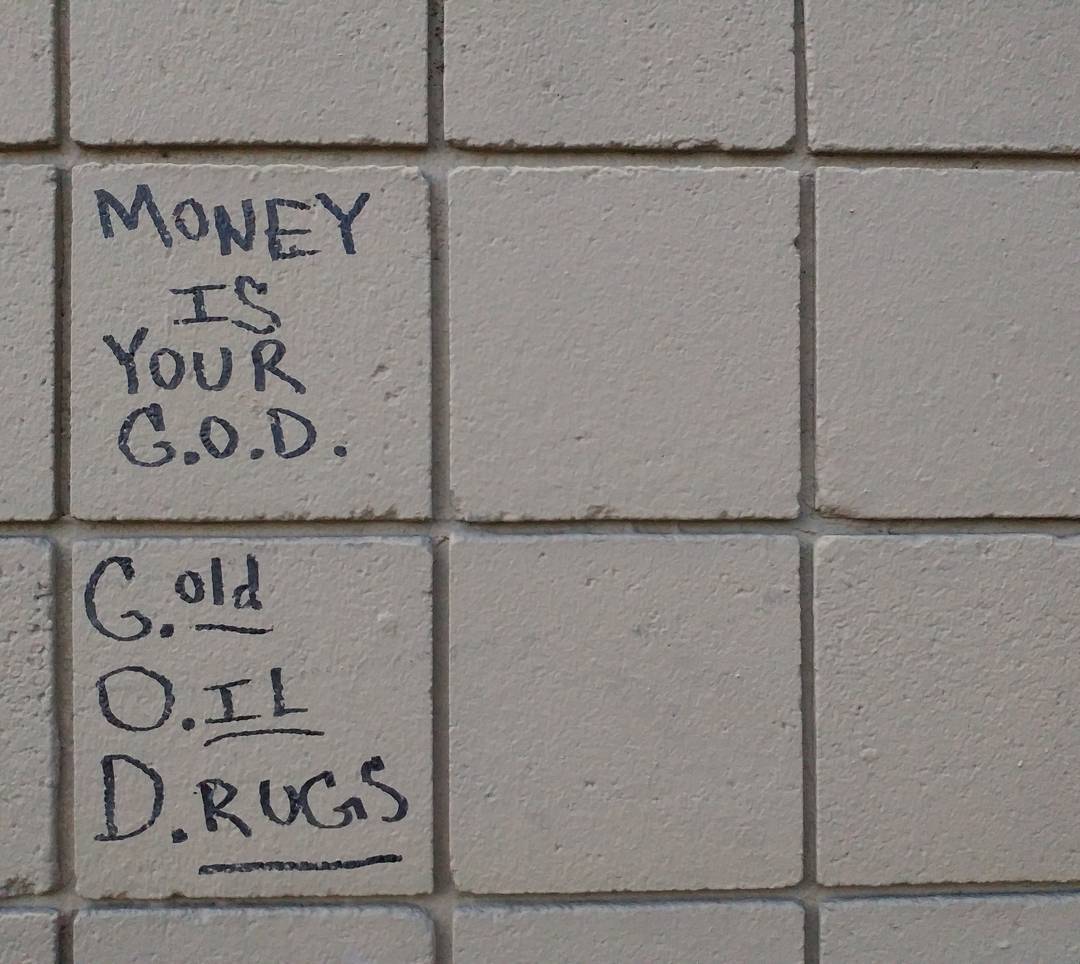 MONEY
IS
YOUR
G.O.D.
G.old
O.IL
D.RUGS